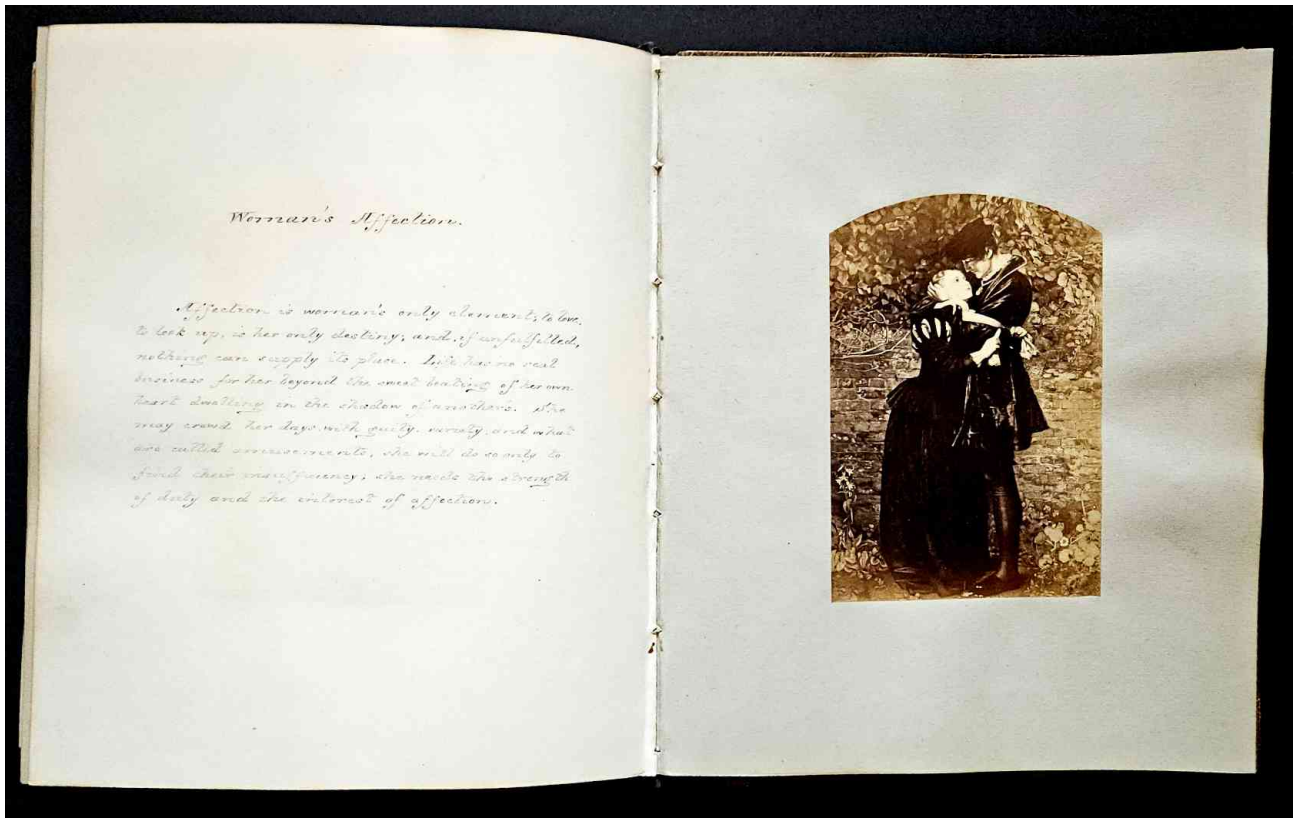 Woman's Affection.
Affection is woman's only element; to love,
to look up, is her only destiny; and, if unfulfilled,
nothing can supply its place. Life has no real
business for her beyond the sweet beating of her own
heart dwelling in the shadow of another's. She
may crowd her days with gaiety, variety, and what
are called amusements, she will do so only to
find their insufficiency; she needs the strength
of duty and the interest of affection.